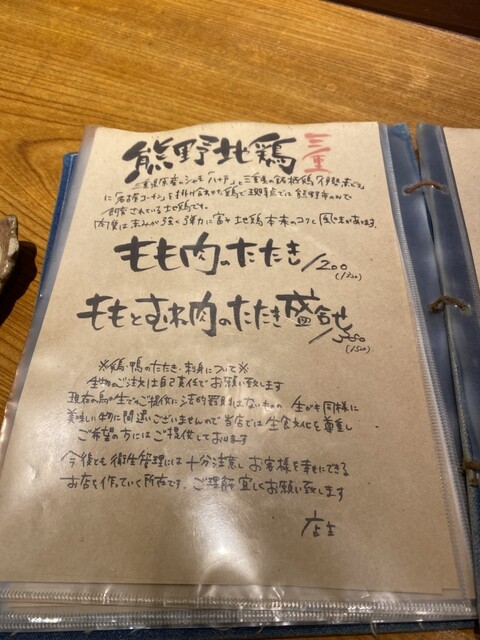 熊野地鶏 三重
三重県原産のシャモ「八木戸」と三重県の銘柄鶏「伊勢赤どり」
に「名古屋コーチン」を掛け合わせた鶏で現時点では熊野市のみで
飼育されている地鶏です。
肉質は赤みが強く弾力に富み地鶏本来のコクと風味があります。
もも肉のたたき/1200
(1320)
ももとむね肉のたたき盛合せ/1380
(1500)
※鶏・鴨のたたき・刺身について※
生物のご注文は自己責任でお願い致します
現在の鳥が生でのご提供に法的罰則はないものの 生ガキ同様に
美味しい物に間違いございませんので当店では生食文化を尊重し
ご希望の方にはご提供しております
今後とも衛生管理には十分注意しお客様を幸せにできる
お店を作っていく所存です。ご理解宜しくお願い致します
店主